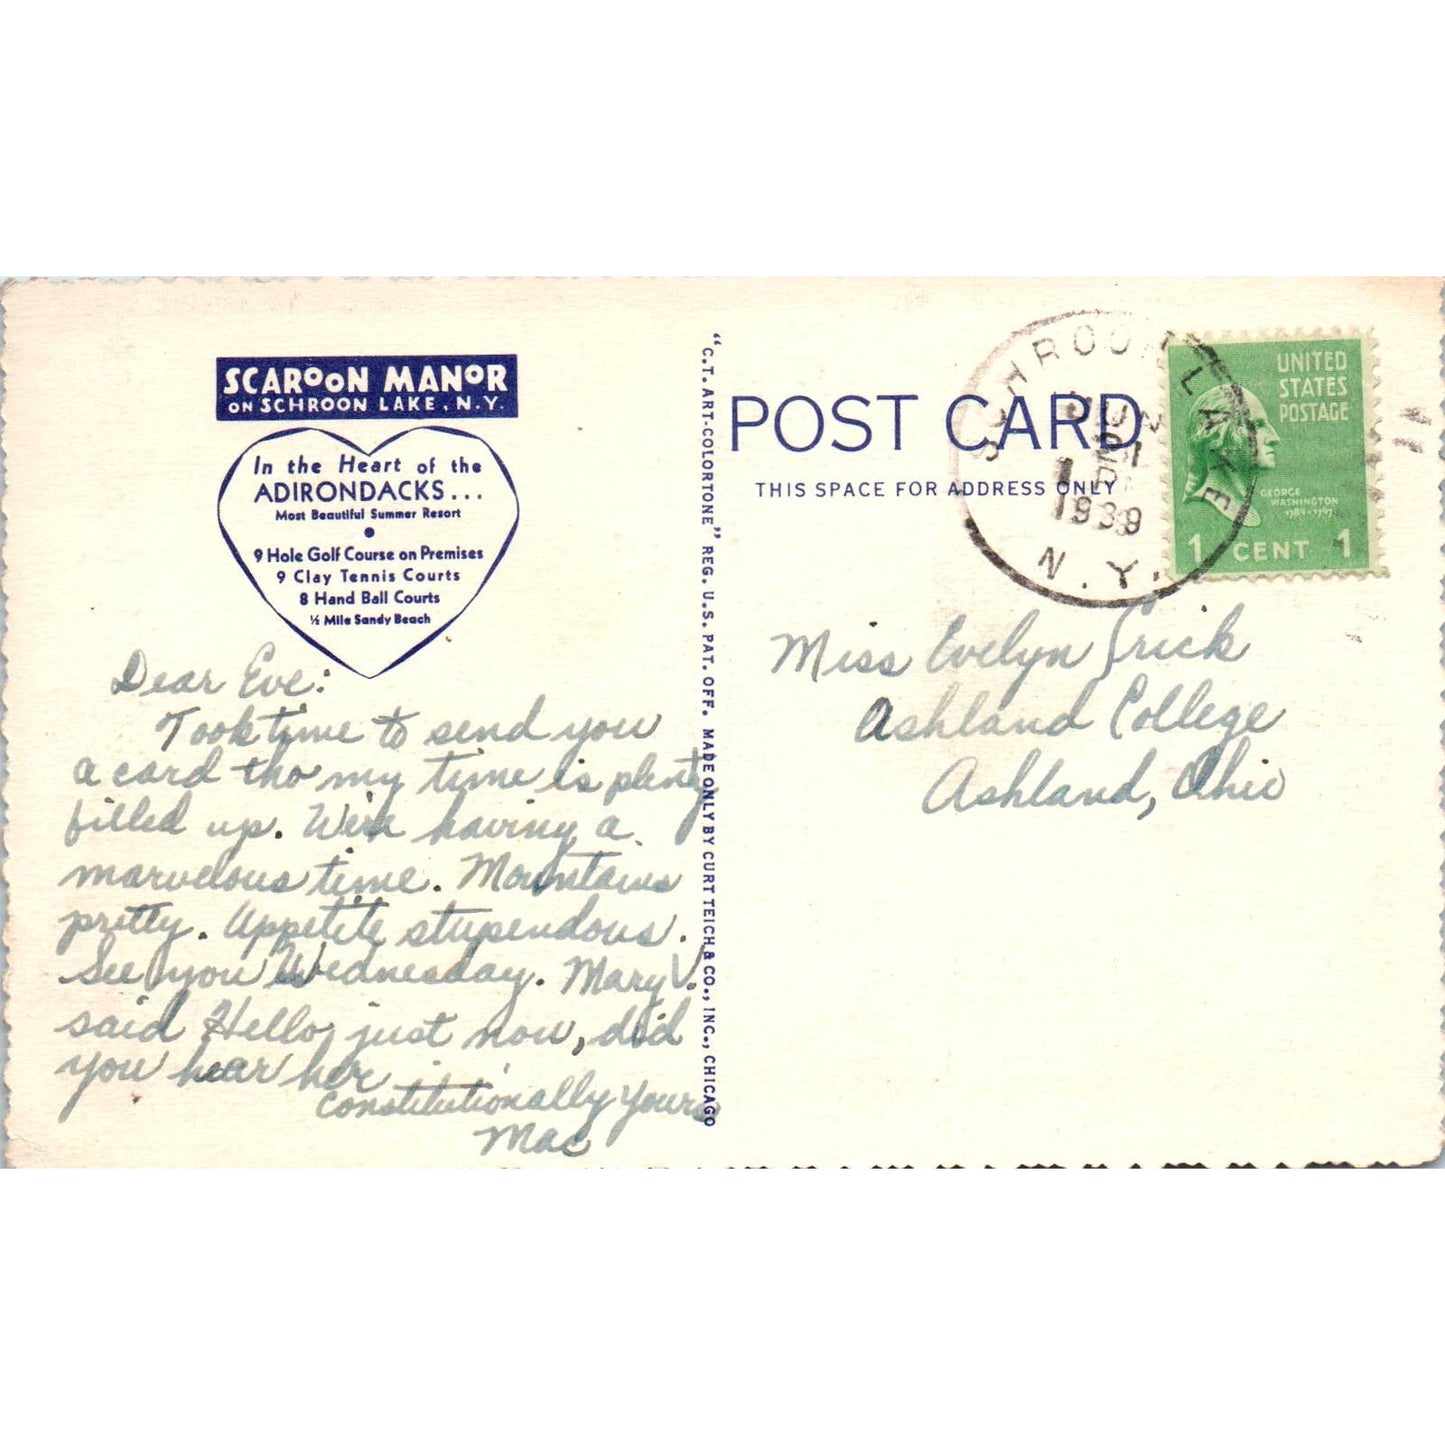 SCAROON MANOR
ON SCHROON LAKE, N.Y.
In the Heart of the
ADIRONDACKS...
Most Beautiful Summer Resort
9 Hole Golf Course on Premises
9 Clay Tennis Courts
8 Hand Ball Courts
½ Mile Sandy Beach
Dear Eve:
Took time to send you
a card tho my time is plenty
filled up. We're having a
marvelous time. Mountains
pretty. Appetite stupendous.
See you Wednesday. Mary V.
said Hello, just now, did
you hear her
Constitutionally Yours
Mac
"C.T. ART-COLORTONE" REG. U.S. PAT. OFF. MADE ONLY BY CURT TEICH & CO., INC., CHICAGO
POST CARD
THIS SPACE FOR ADDRESS ONLY
SCHROON LAKE
1939
N.Y.
UNITED
STATES
POSTAGE
GEORGE
WASHINGTON
1789-1797
1 CENT 1
Miss Evelyn
Ashland College
Ashland, Ohio